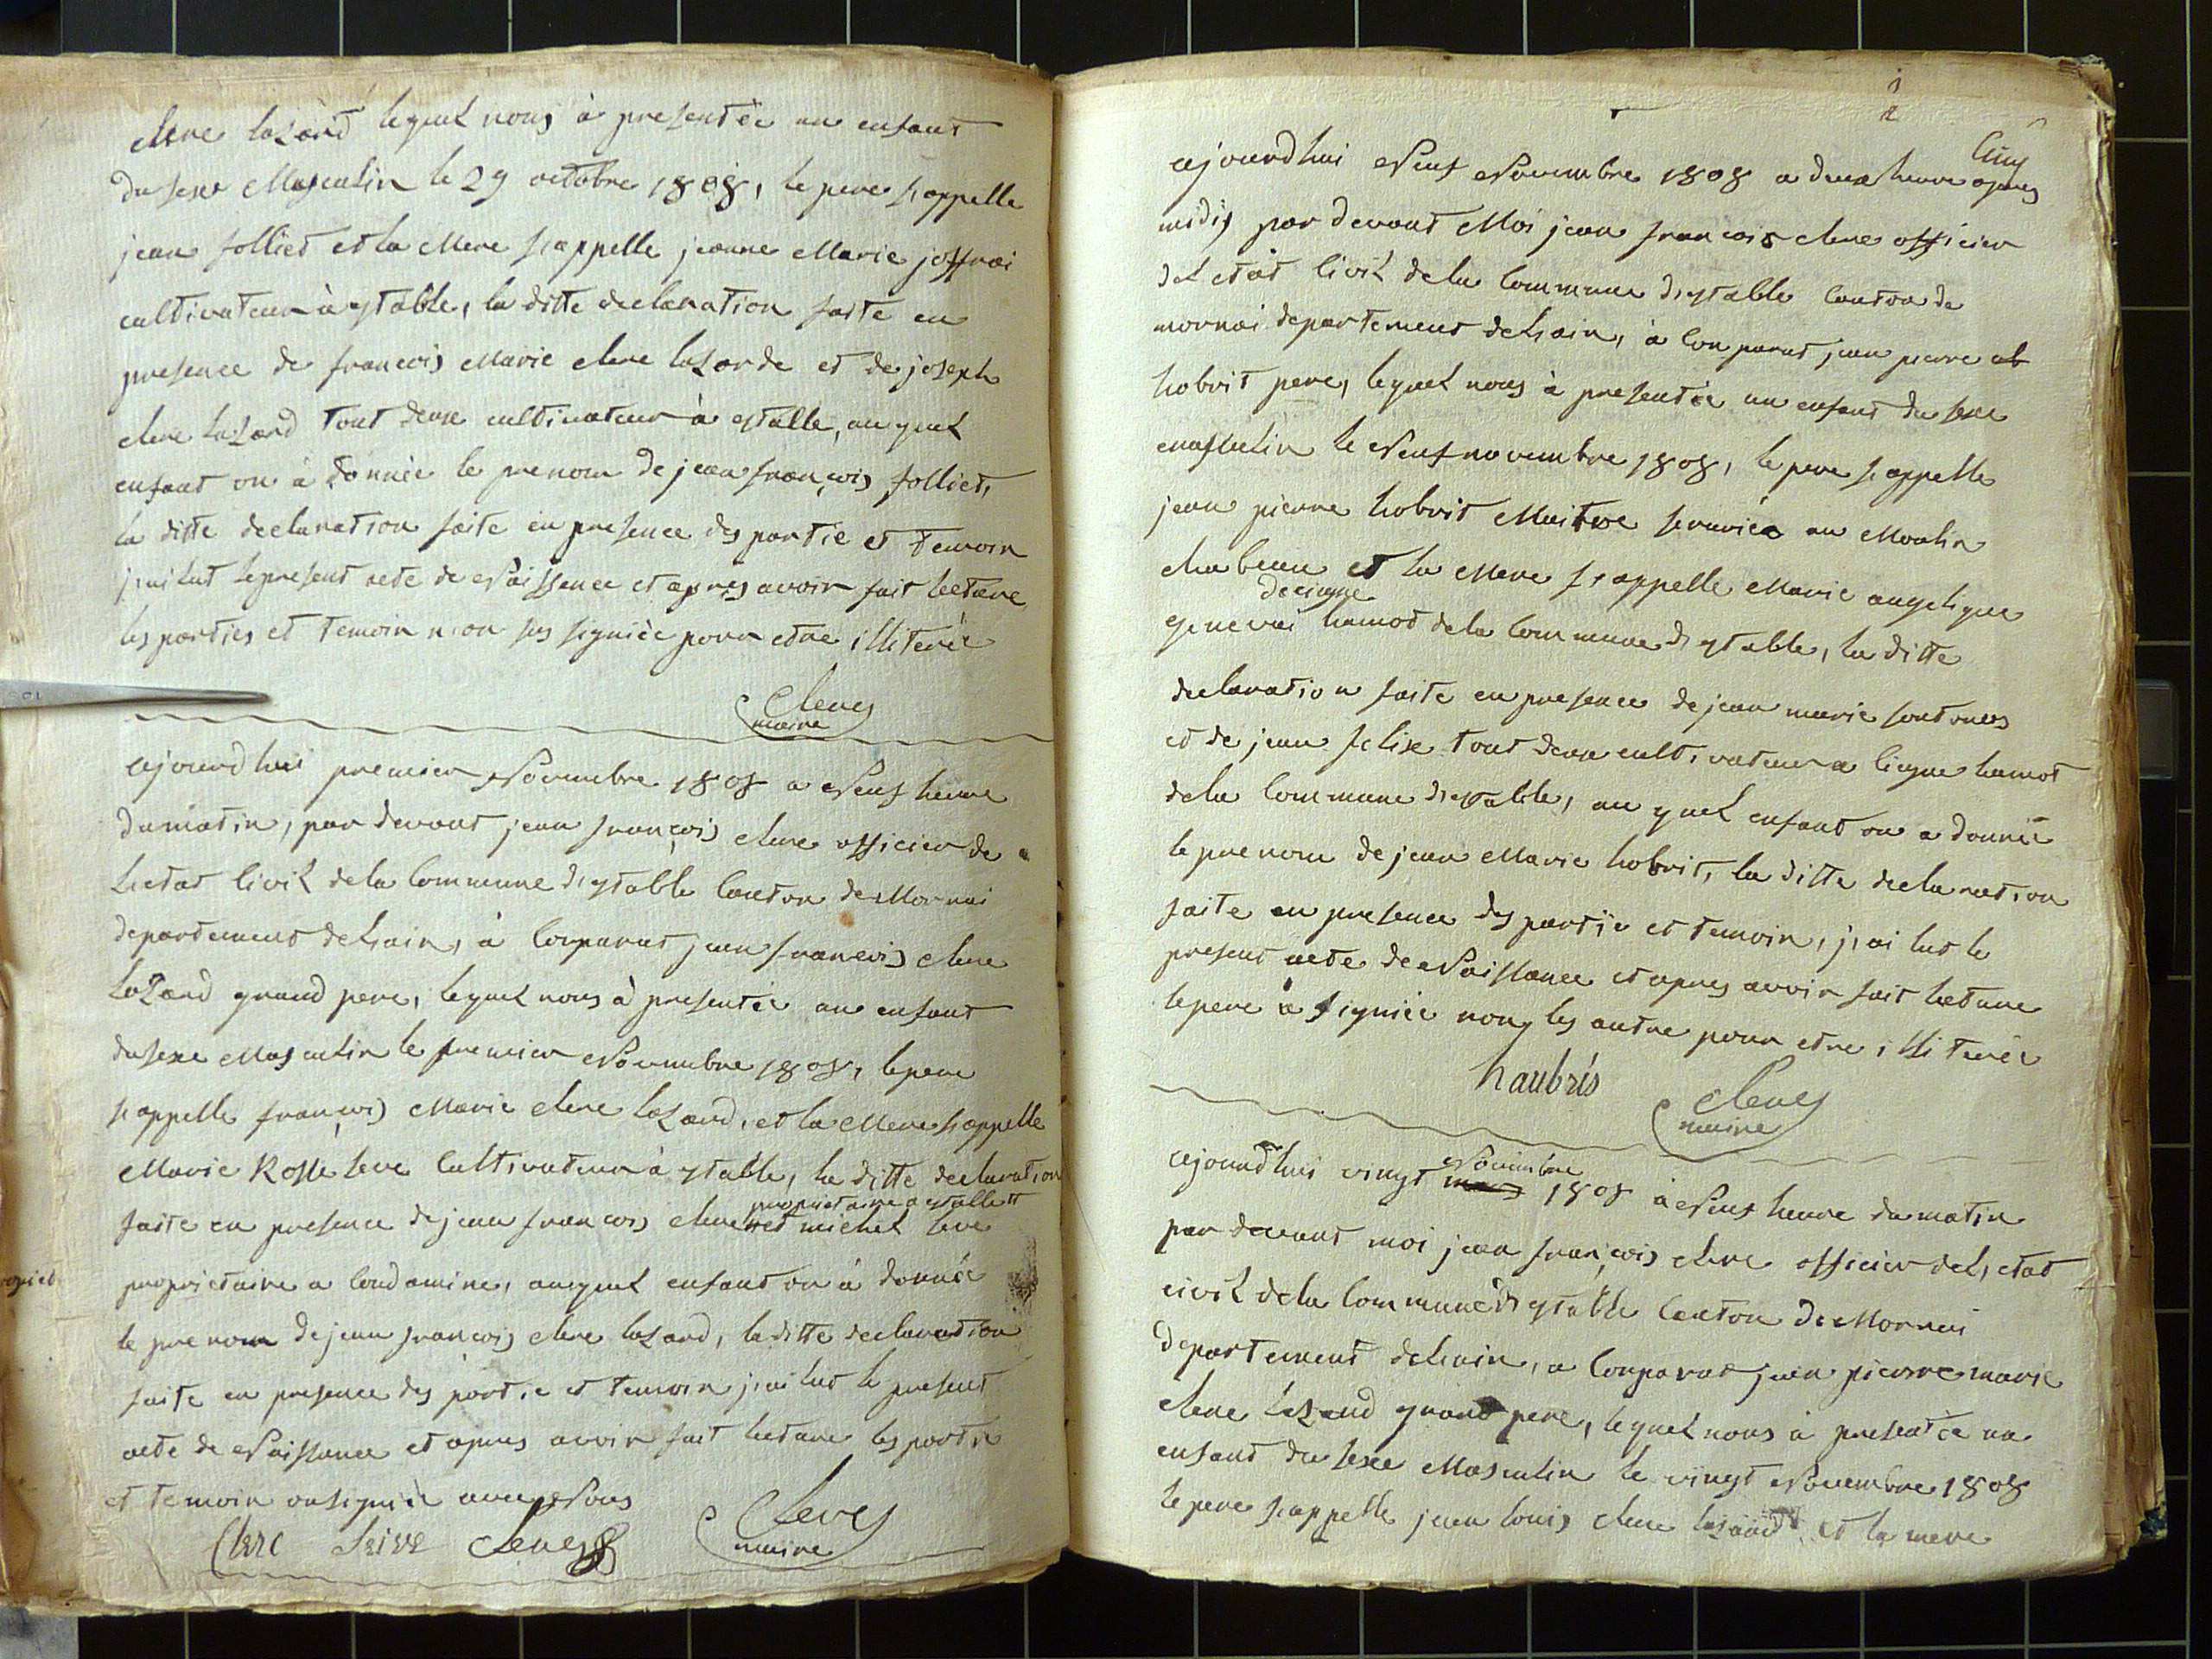 clerc lazard lequel nous à presentée un enfant
du sexe Masculin le 29 octobre 1808, le pere s,appelle
jean folliet et la Mere s,appelle jeanne Marie joffrai
cultivateur à estable, la ditte declaration faite en
presence de francois Marie clerc lazarde et de joseph
clerc lazard tout deux cultivateur à estable, au quel
enfant on à donnée le prenom de jean françois folliet,
la ditte declaration faite en presence des partie et temoin
j,ai lut le present acte de Naissance et apres avoir fait lecture
les parties et temoin n,on pas signiée pour etre illiterée
Clerc
maire
ajourdhui premier Novembre 1808 a Neuf heure
du matin, par devant jean françois clerc officier de
l,etat Civil de la Commune d,estable Canton de Mornai
departement de l,ain, à Comparut jean francois clerc
lazard grand pere, lequel nous à presentée un enfant
du sexe Masculin le premier Novembre 1808, le pere
s,appelle françois Marie clerc lazard, et la Mere s,appelle
Marie Rosse seve Cultivateur à estable, la ditte declaration
proprietaire a estable et
faite en presence de jean francois clerc et michel seve
proprietaire a Condamine, auquel enfant on à donnée
le prenom de jean françois clerc lazard, la ditte declaration
faite en presence des partie et temoin j,ai lut le present
acte de Naissance et apres avoir fait lecture les partie
et temoin on signiée avec Nous
Clerc Seive Clerc Clerc
maire
ajourdhui Neuf Novembre 1808 a deux heure apres
midis par devant Moi jean françois clerc officier
del etat Civil de la Commune d,estable Canton de
mornai departement de l,ain, à Comparut jean pierre
hobrit pere, lequel nous à presentée un enfant du sexe
masculin le Neuf novembre 1808, le pere s,appelle
jean pierre hobrit Maitre au Moulin
chabeau et la Mere s,appelle Marie angelique
de ciegne
genevai hamot de la Commune d,estable, la ditte
declaration faite en presence de jean marie
et de jean felix tout deux cultivateur a ciegne hamot
de la Commune d,estable, au quel enfant on a donnée
le prenom de jean Marie hobrit, la ditte declaration
faite en presence des partie et temoin, j,ai lut le
present acte de Naissance et apres avoir fait lecture
le pere à signiée non les autre pour etre illiterée
haubris Clerc
maire
Novembre
ajourdhui vingt mars 1808 à Neuf heure du matin
par devant moi jean françois clerc officier del,etat
civil de la Commune d,estable Canton de Mornai
departement de l,ain, a Comparut jean pierre marie
clerc lazard grand pere, lequel nous à presentée un
enfant du sexe Masculin le vingt Novembre 1808
le pere s,appelle jean louis clerc lazard et la mere